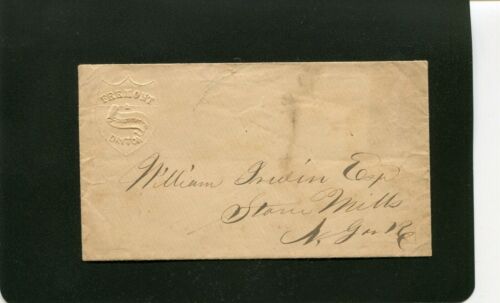 FREMONT
DAYTON
William Irwin Esqr
Stone Mills
N. York